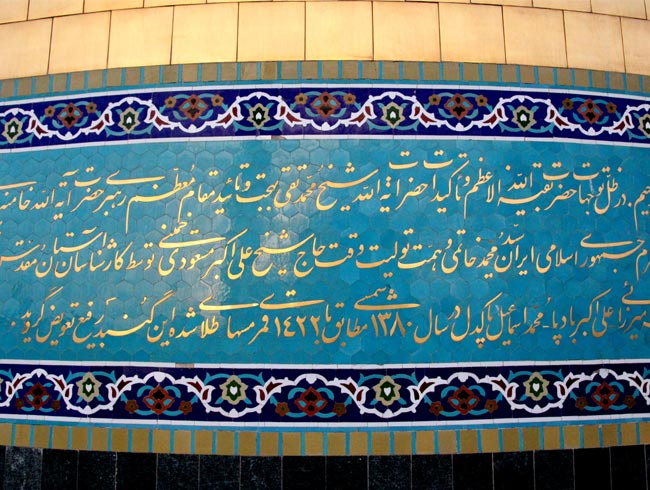 در ظل توجهات حضرت بقیة الله الاعظم و تاکیدات حضرت آیة الله شیخ محمد تقی بهجت و تائید مقام معظم رهبری حضرت آیة الله خامنه
جمهوری اسلامی ایران سید محمد خاتمی و همت تولیت وقت حاج شیخ علی اکبر مسعودی خمینی توسط کارشناسان آستان مقدس
میرزائی علی اکبر بادپا - محمد اسماعیل پاکدل در سال ۱۳۸۰ شمسی مطابق با ۱۴۲۲ قمری مسهای طلا شده این گنبد رفیع تعویض گردید.